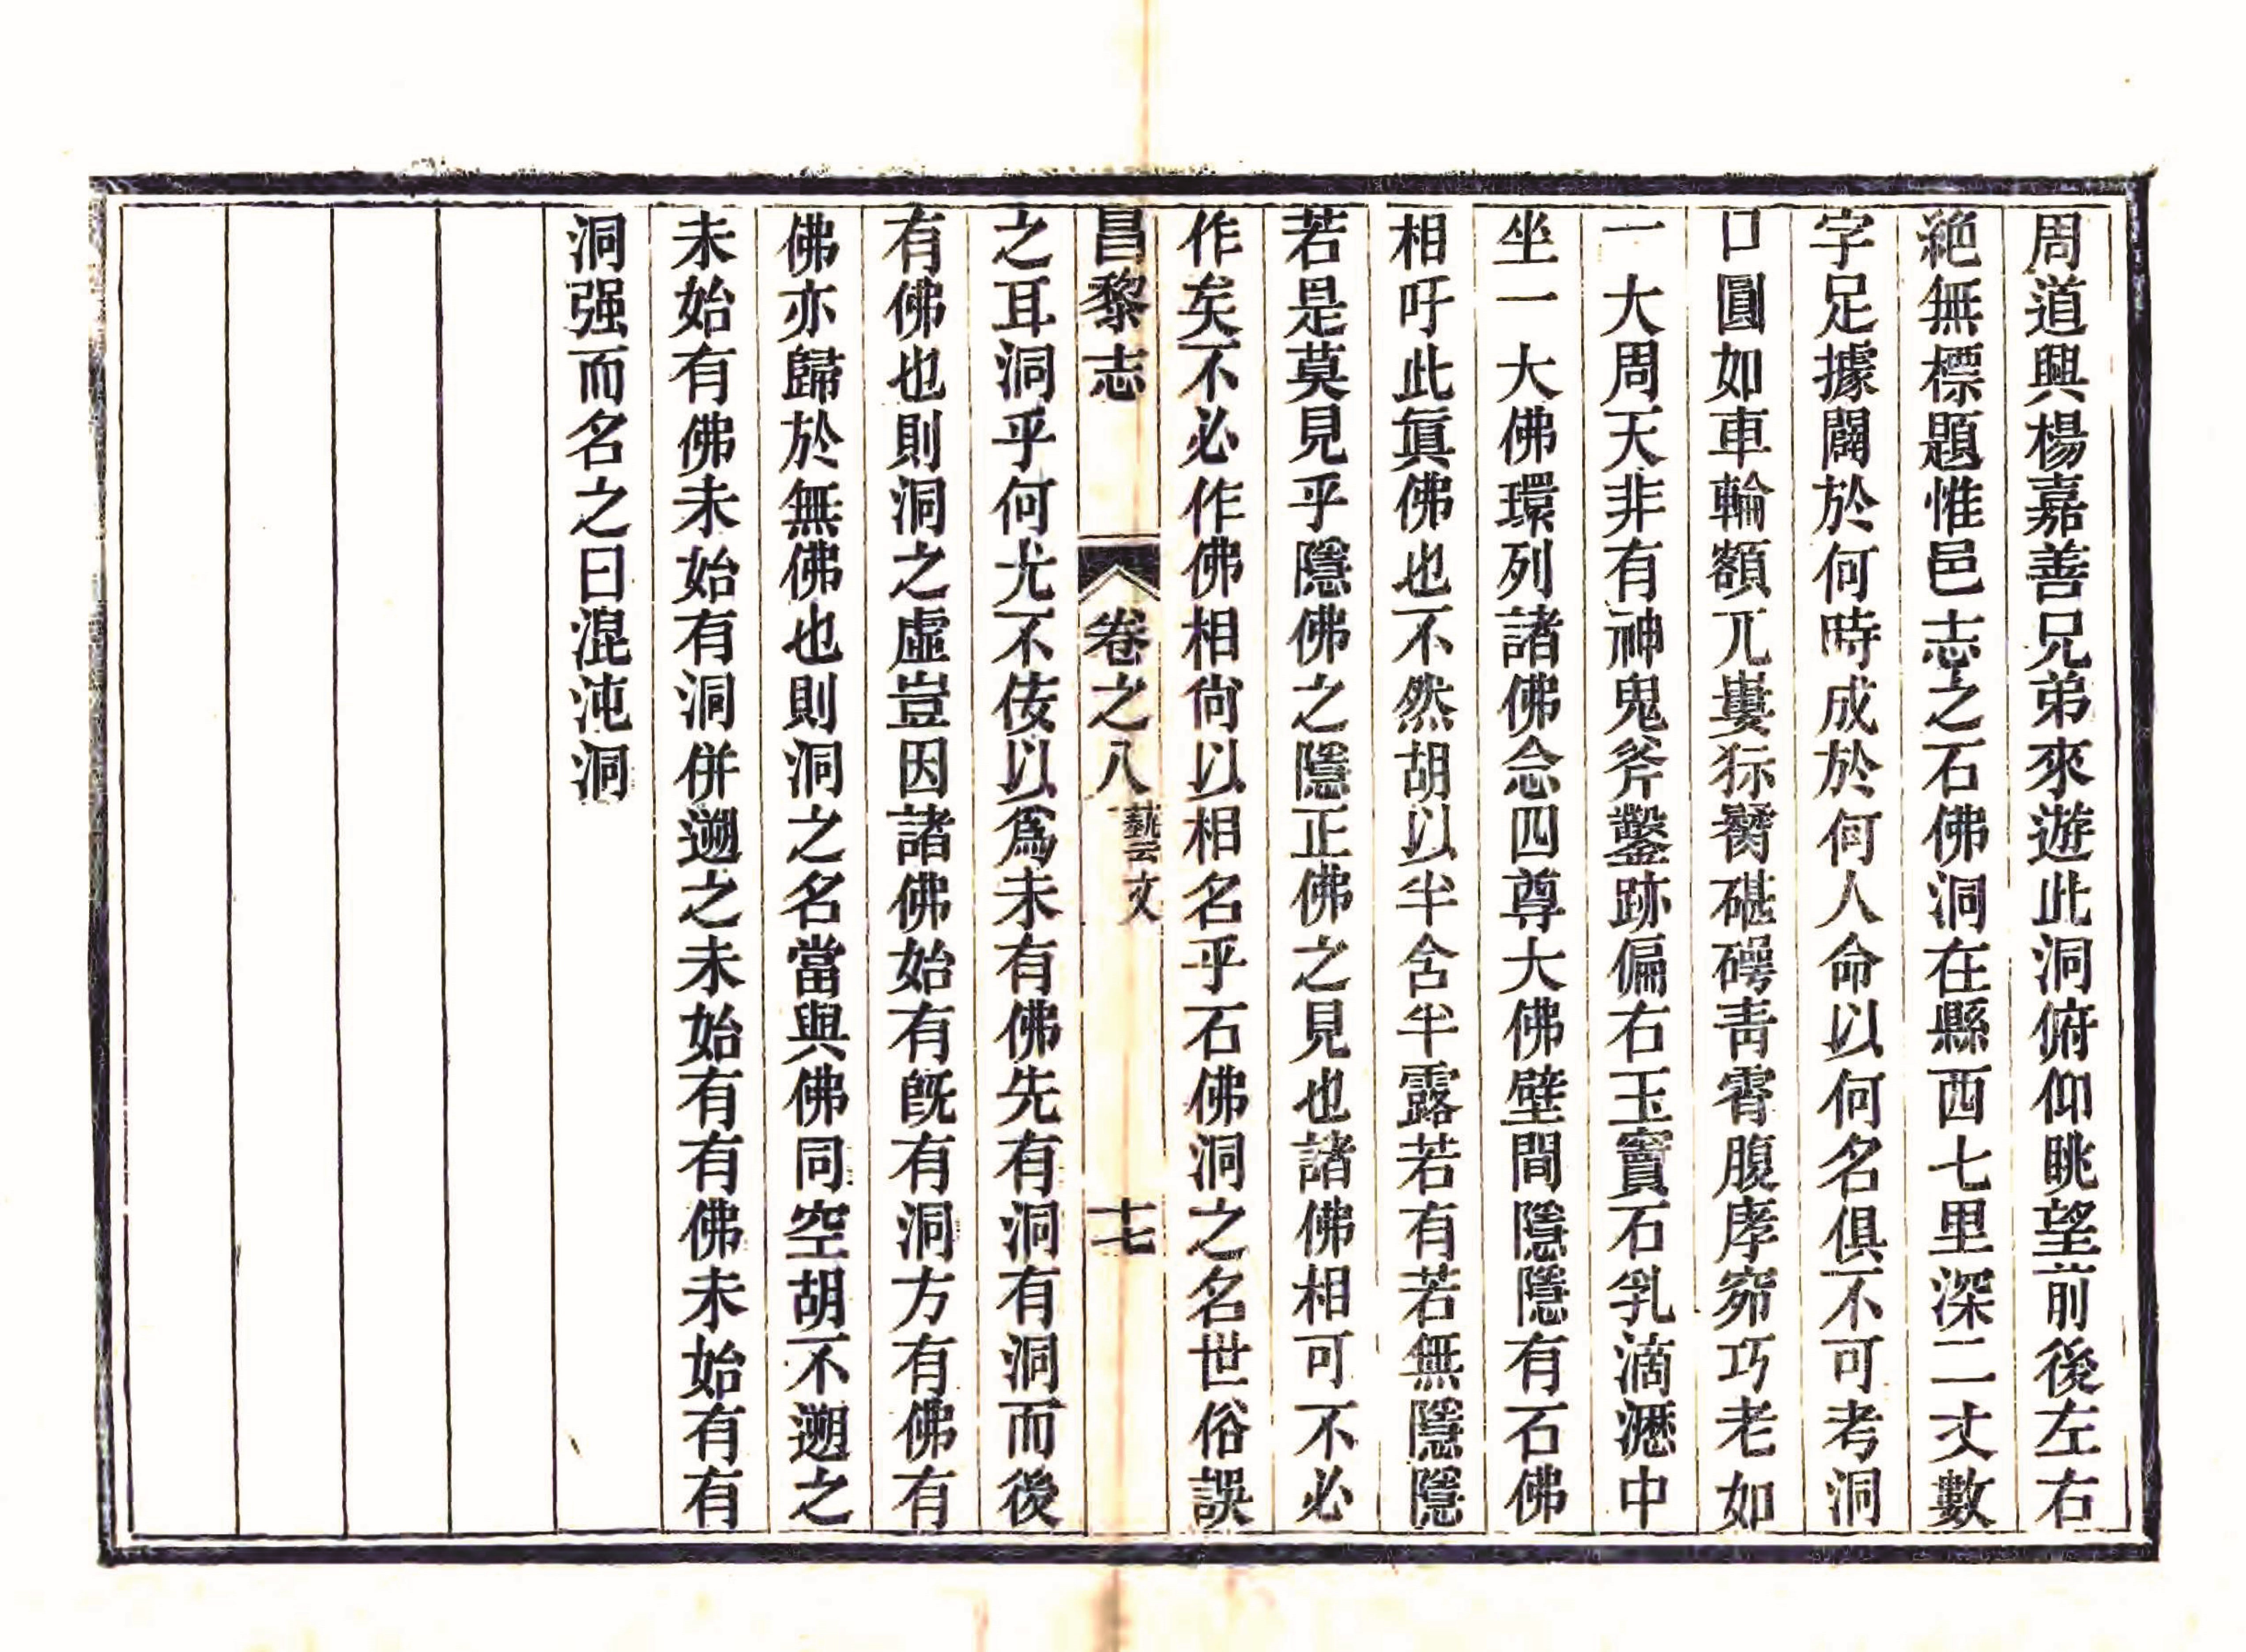 周道興楊嘉善兄弟來遊此洞俯仰眺望前後左右
絕無標題惟邑志之石佛洞在縣西七里深二丈數
字足據闢於何時成於何人命以何名俱不可考洞
口圓如車輪額兀嶁狋礀碪碍靑霄腹庨窌巧老如
一大周天非有神鬼斧鑿跡偏右玉竇石乳滴瀝中
坐一大佛環列諸佛念四尊大佛壁間隱隱有石佛
相吁此眞佛也不然胡以半含半露若有若無隱隱
若是莫見乎隱佛之隱正佛之見也諸佛相可不必
作矣不必作佛相尙以相名乎石佛洞之名世俗誤
昌黎志 卷之八 藝文 十七
之耳洞乎何尤不侫以爲未有佛先有洞有洞而後
有佛也則洞之虛豈因諸佛始有旣有洞方有佛有
佛亦歸於無佛也則洞之名當與佛同空胡不遡之
未始有佛未始有洞併遡之未始有有佛未始有有
洞强而名之曰混沌洞